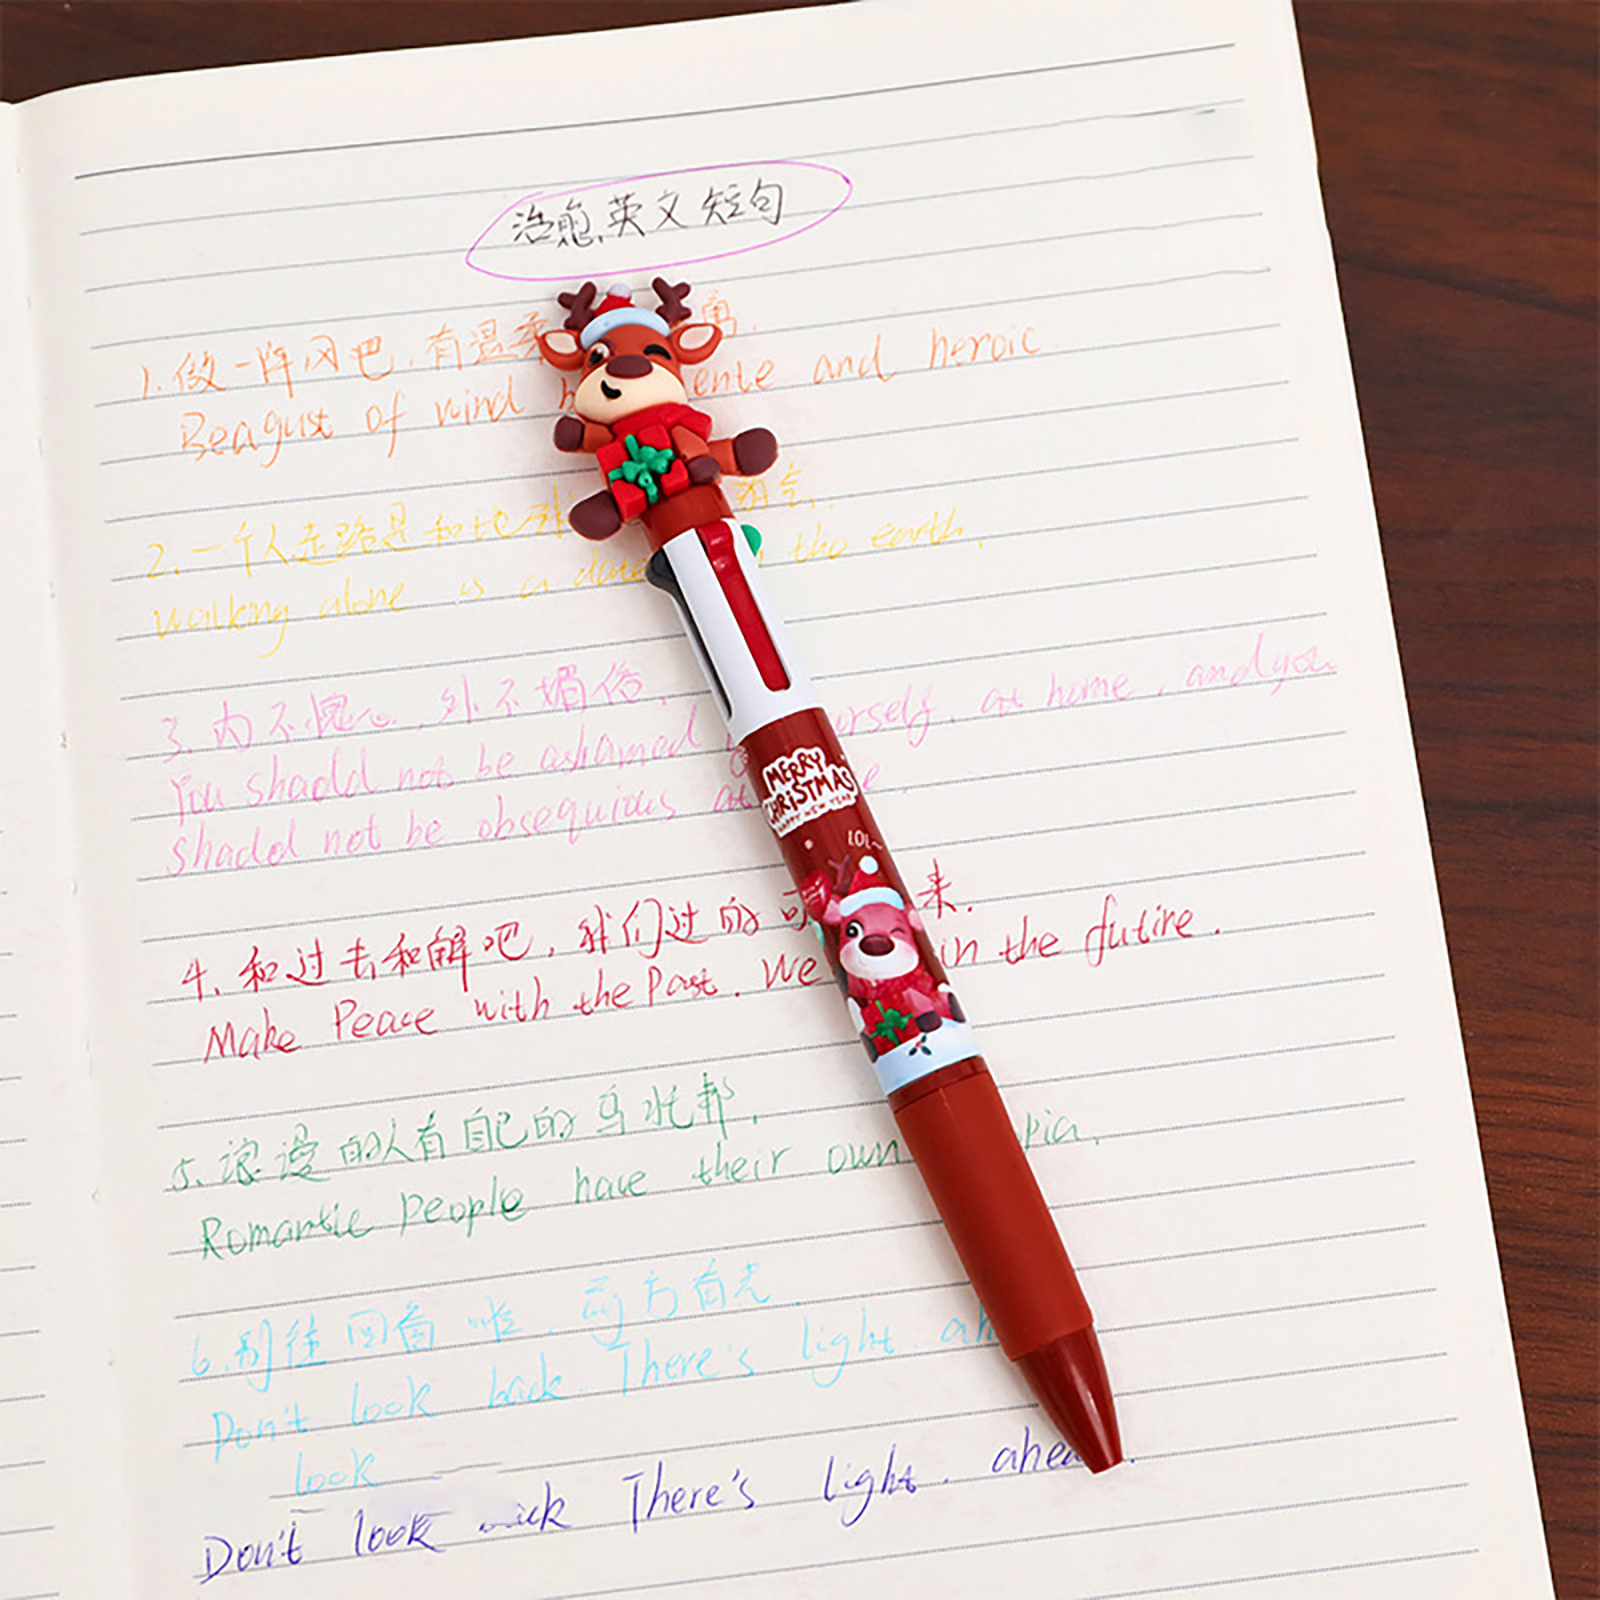 治愈英文短句
1.做一阵风吧,有温柔
Beagust of wind ente and heroic.
2.一个人走路是和地球 勇气.
walking alone is a date the earth.
3.内不愧心,外不媚俗,
You shadd not be ashamed urself, at home, and you
shadd not be obsequious at e.
4、和过去和解吧,我们过的可 来.
Make Peace with the Past. We in the futire.
5、浪漫的人有自己的乌托邦,
Romantic People have their own pia.
6.别往回看啦,前方有光
Don't look back. There's light. ah
look
Don't look There's light. ahea
MERRY
CHRISTMAS
HAPPY NEW YEAR
LOL~